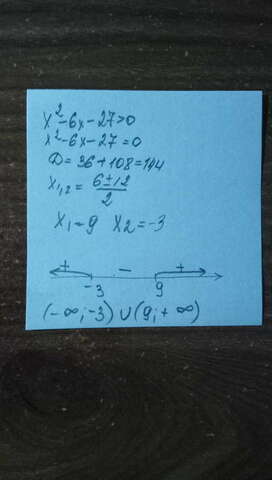 x²-6x-27>0
x²-6x-27=0
D=36+108=144
x₁,₂=(6±12)/2
x₁=9 x₂=-3
+ - +
-3 9
(-∞;-3)∪(9;+∞)